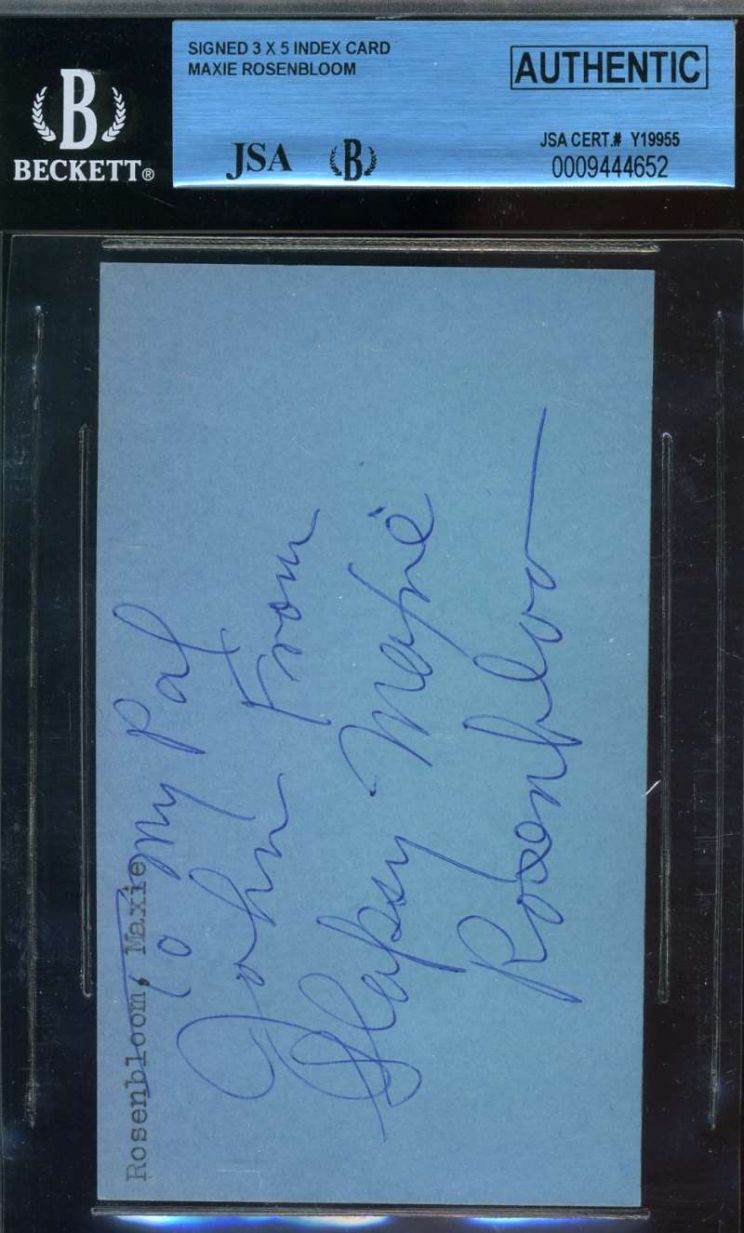 SIGNED 3 X 5 INDEX CARD
MAXIE ROSENBLOOM
AUTHENTIC
B
BECKETT®
JSA B
JSA CERT.# Y19955
0009444652
Rosenbloom, Maxie
To My Pal
John From
Slapsy Maxie
Rosenbloo